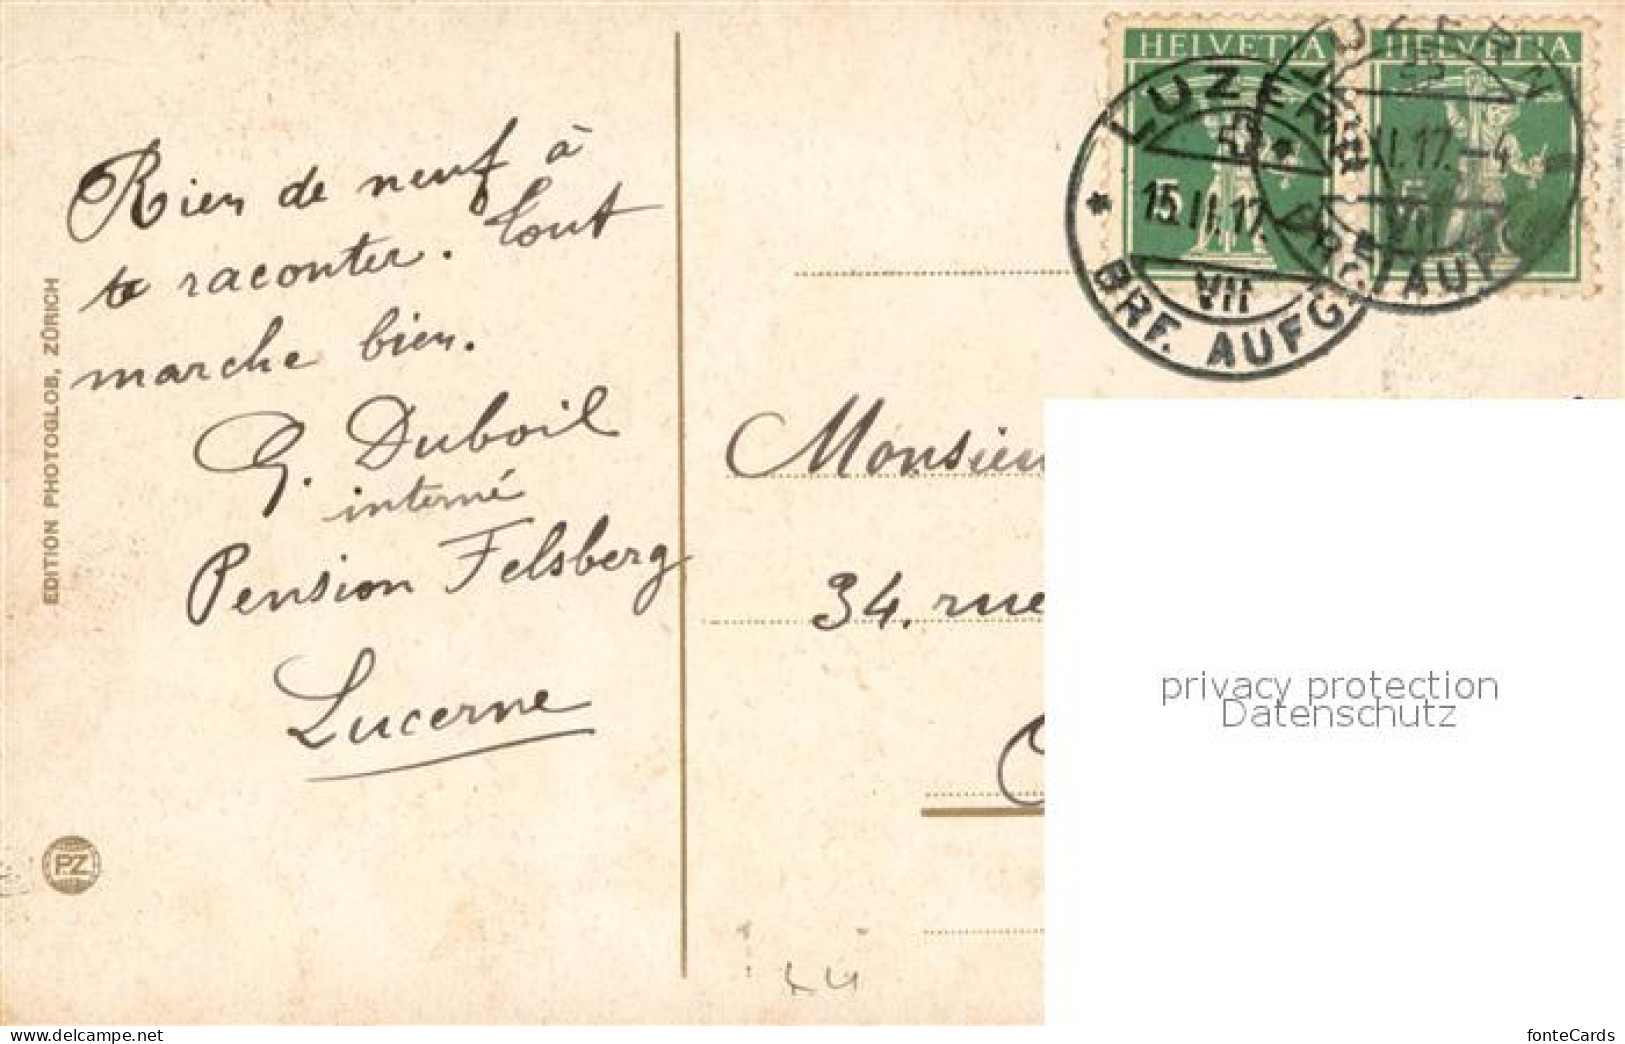 Rien de neuf à
te raconter. Tout
marche bien.
G. Duboil
interné
Pension Felsberg
Lucerne
EDITION PHOTOGLOB, ZÜRICH
PZ
HELVETIA
HELVETIA
5
5
LUZERN
15.II.17.
VII
BRF. AUFG.
LUZERN
II.17.-4
VII
BRF. AUFG.
Monsieu
34. rue
privacy protection
Datenschutz
fonteCards